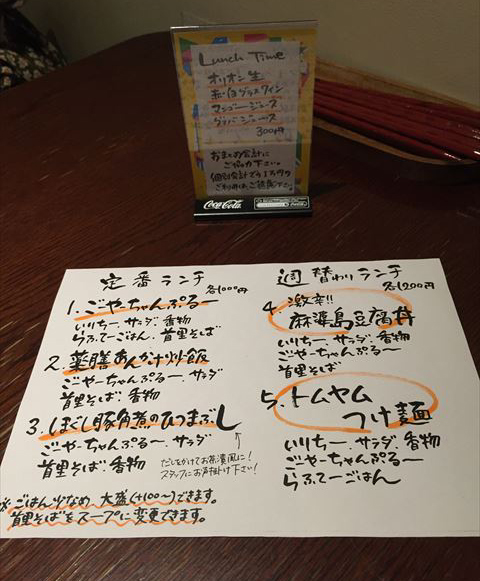 Lunch Time
オリオン生
赤・白グラスワイン
マンゴージュース
グァバジュース
300円
おまとめ会計に
ご協力下さい。
個別会計での1万円の
ご利用はご遠慮下さい。
Coca-Cola
定番ランチ
各1000円
1. ごやちゃんぷるー
いりちー サラダ 香物
らふてーごはん、首里そば
2. 薬膳あんかけ炒飯
ごーやーちゃんぷるー、サラダ
首里そば 香物
3. ほぐし豚角煮のひつまぶし
ごーやーちゃんぷるー、サラダ
首里そば 香物
だしをかけてお茶漬風に!
スタッフにお声掛け下さい!
※ごはん少なめ 大盛(+100~)できます。
首里そばをスープに変更できます。
週替わりランチ
各1200円
4. 激辛!!
麻婆島豆腐丼
いりちー サラダ 香物
ごーやーちゃんぷるー
首里そば
5. トムヤム
つけ麺
いりちー、サラダ 香物
ごーやーちゃんぷる〜
らふてーごはん